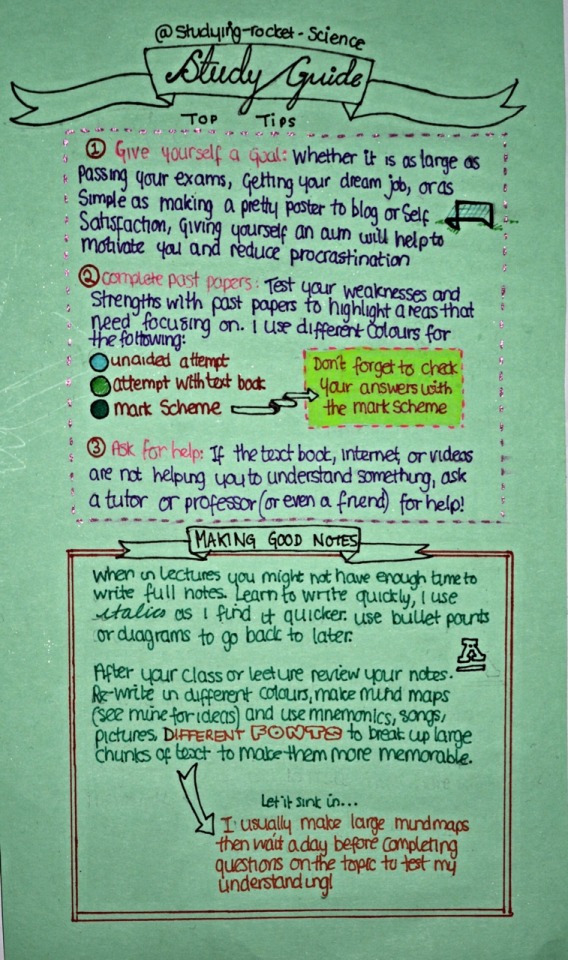 @studying-rocket-science
Study Guide
TOP TIPS
① Give yourself a goal: Whether it is as large as
passing your exams, getting your dream job, or as
simple as making a pretty poster to blog or self
satisfaction, giving yourself an aim will help to
motivate you and reduce procrastination
② complete past papers: Test your weaknesses and
strengths with past papers to highlight areas that
need focusing on. I use different colours for
the following:
unaided attempt
attempt with text book
mark scheme
Don't forget to check
your answers with
the mark scheme
③ Ask for help: If the text book, internet, or videos
are not helping you to understand something, ask
a tutor or professor (or even a friend) for help!
MAKING GOOD NOTES
when in lectures you might not have enough time to
write full notes. Learn to write quickly, I use
italics as I find it quicker. use bullet points
or diagrams to go back to later.
A
After your class or lecture review your notes.
Re-write in different colours, make mind maps
(see mine for ideas) and use mnemonics, songs,
pictures, DIFFERENT FONTS to break up large
chunks of text to make them more memorable.
Let it sink in...
I usually make large mindmaps
then wait a day before completing
questions on the topic to test my
understanding!